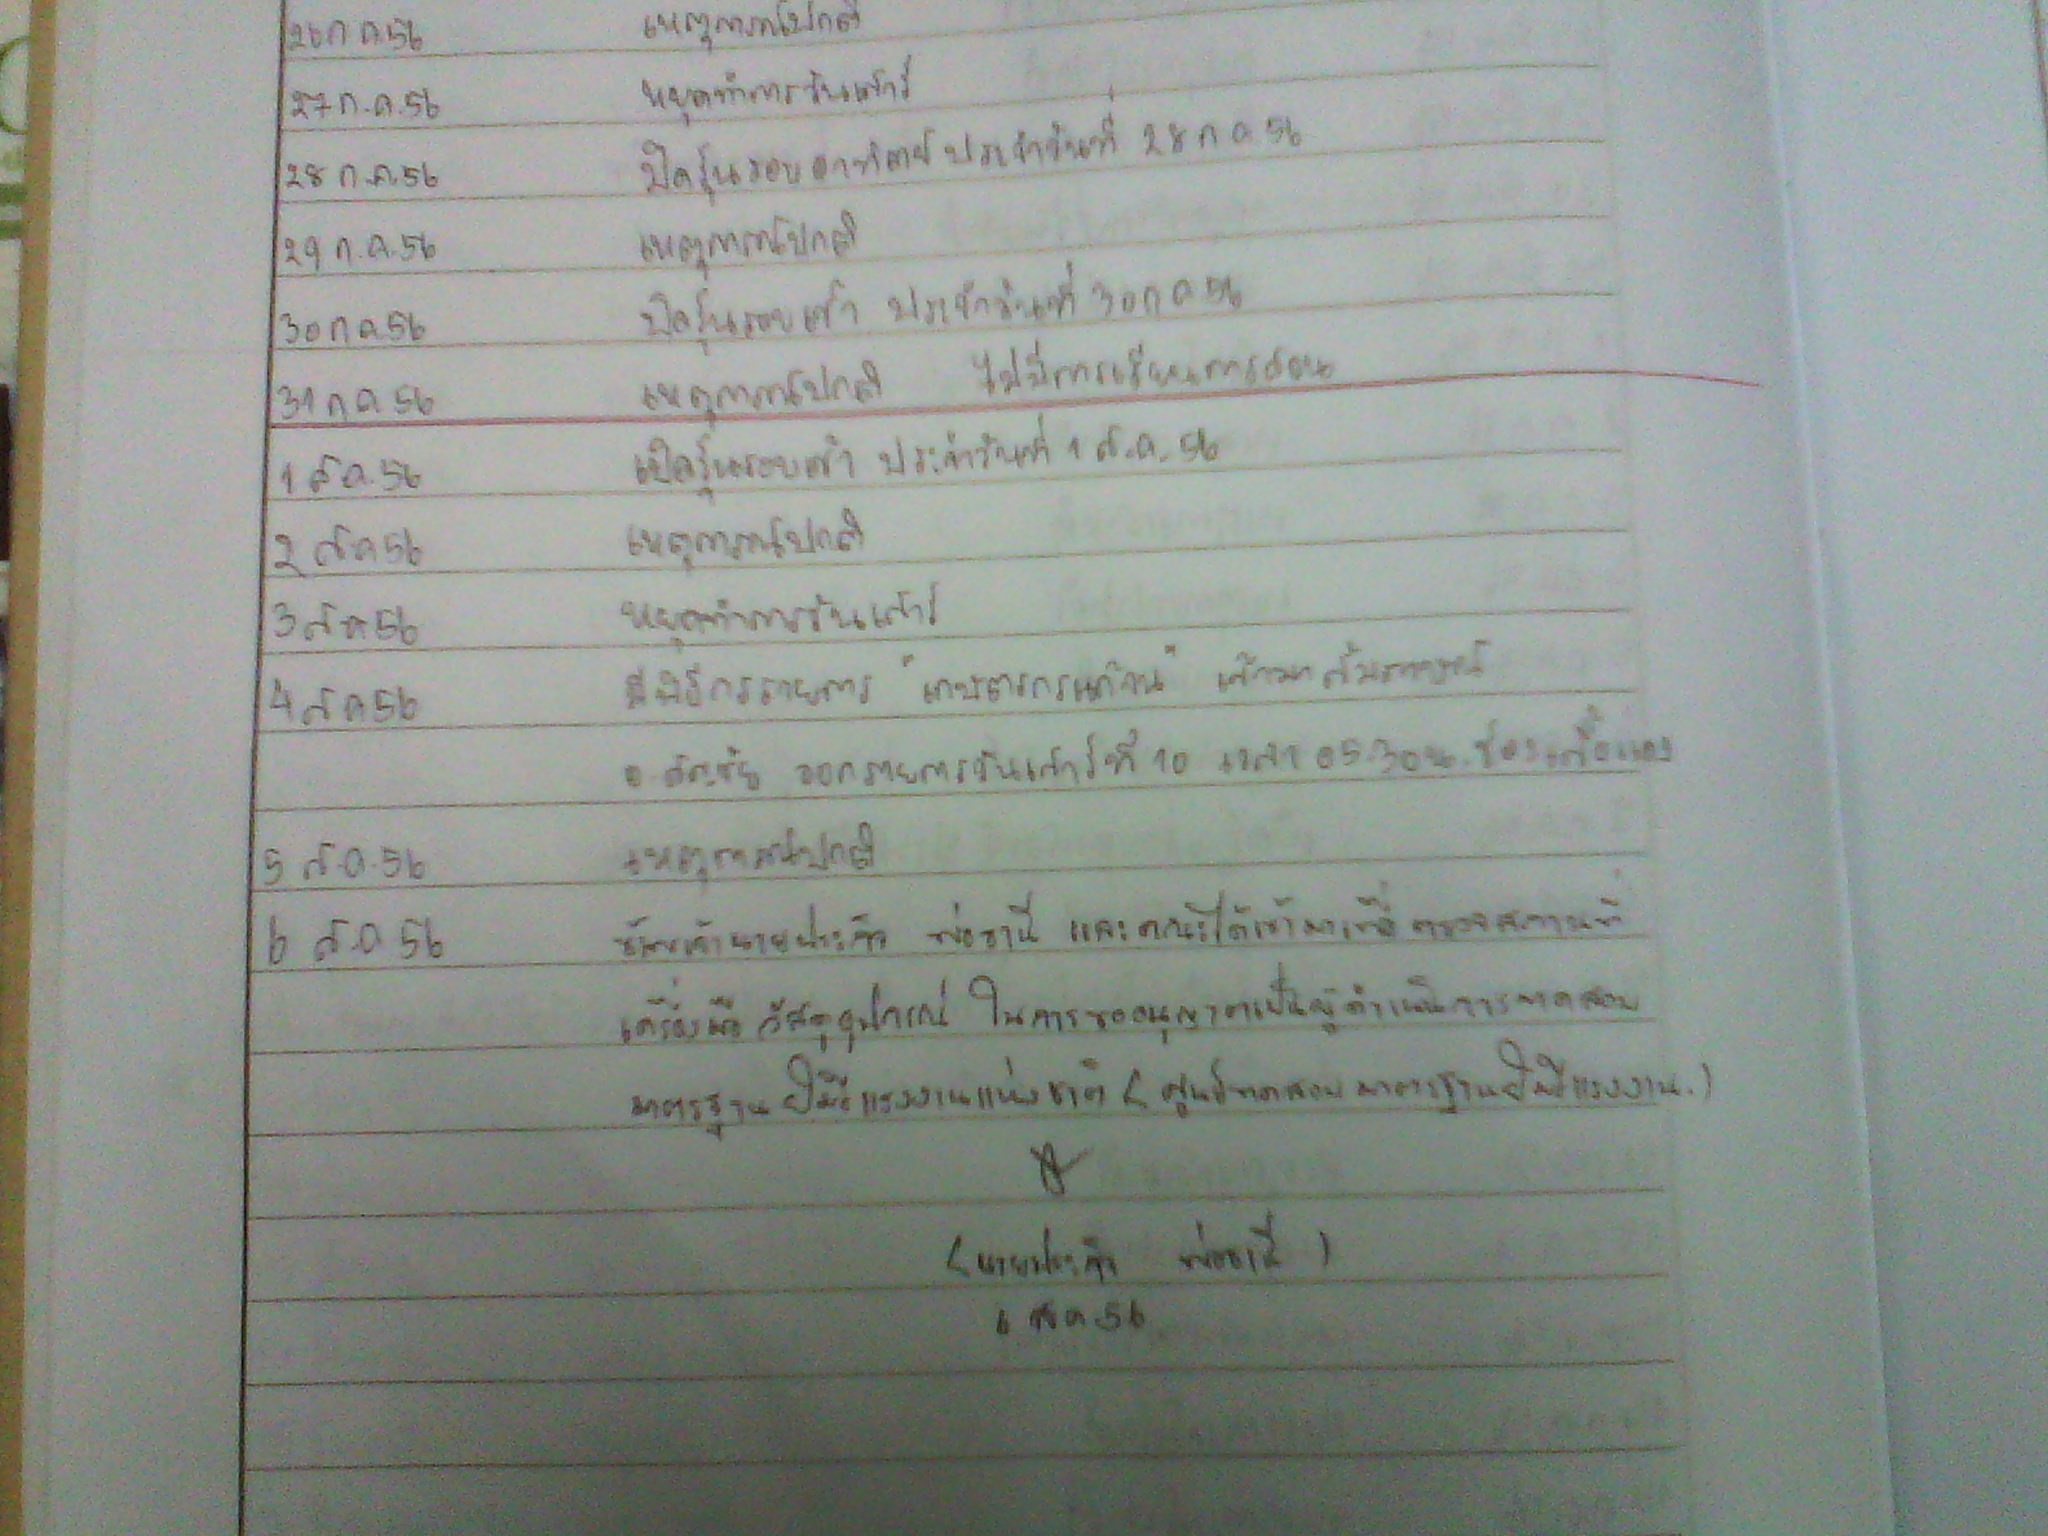 26 ก.ค.56 เหตุการณ์ปกติ
27 ก.ค.56 หยุดทำการวันเสาร์
28 ก.ค.56 ปิดรุ่นรอบอาทิตย์ ประจำวันที่ 28 ก ค 56
29 ก.ค.56 เหตุการณ์ปกติ
30 ก ค 56 ปิดรุ่นรอบเช้า ประจำวันที่ 30 ก ค 56
31 ก.ค 56 เหตุการณ์ปกติ ไม่มีการเรียนการสอน
1 ส.ค.56 เปิดรุ่นรอบเช้า ประจำวันที่ 1 ส.ค.56
2 ส.ค 56 เหตุการณ์ปกติ
3 ส.ค 56 หยุดทำการวันเสาร์
4 ส.ค 56 มีพิธีกรรายการ "เกษตรกรแก้จน" เข้ามาสัมภาษณ์
อ. ออกรายการวันเสาร์ที่ 10 เวลา 05.30 น. ช่อง
5 ส.ค.56 เหตุการณ์ปกติ
6 ส.ค 56 ข้าพเจ้านายประกิจ และคณะได้เข้ามาเพื่อตรวจสถานที่
เครื่องมือ วัสดุอุปกรณ์ ในการขออนุญาตเป็นผู้ดำเนินการทดสอบ
มาตรฐานฝีมือแรงงานแห่งชาติ (ศูนย์ทดสอบมาตรฐานฝีมือแรงงาน.)
(นายประกิจ )
6 ส.ค 56